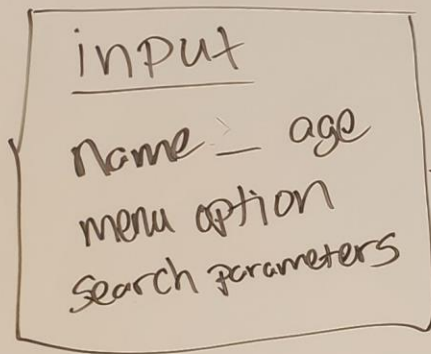 input
name _ age
menu option
search parameters